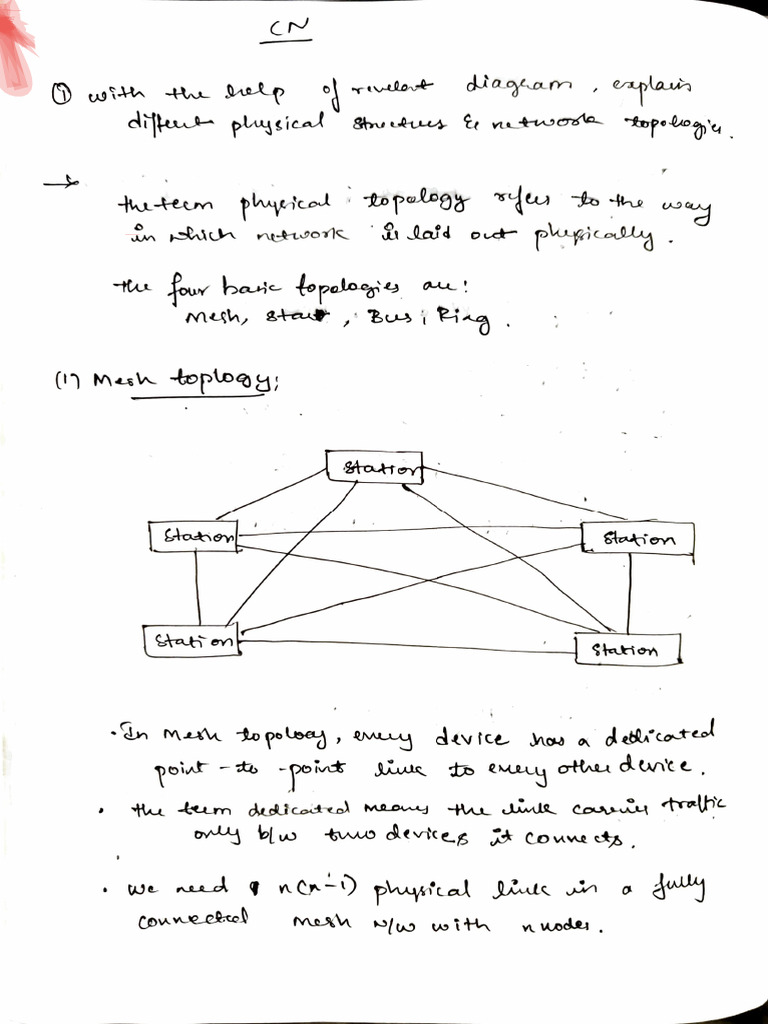 CN
① with the help of revelant diagram, explain
different physical structures & network topologies.
→
the term physical topology refers to the way
in which network is laid out physically.
the four basic topologies are:
Mesh, star, Bus, Ring.
(1) Mesh toplogy:
Station
Station
Station
Station
Station
• In Mesh topology, every device has a dedicated
point-to-point link to every other device.
• the term dedicated means the link carries traffic
only b/w two devices it connects.
• we need n(n-1) physical link in a fully
connected mesh N/w with n nodes.